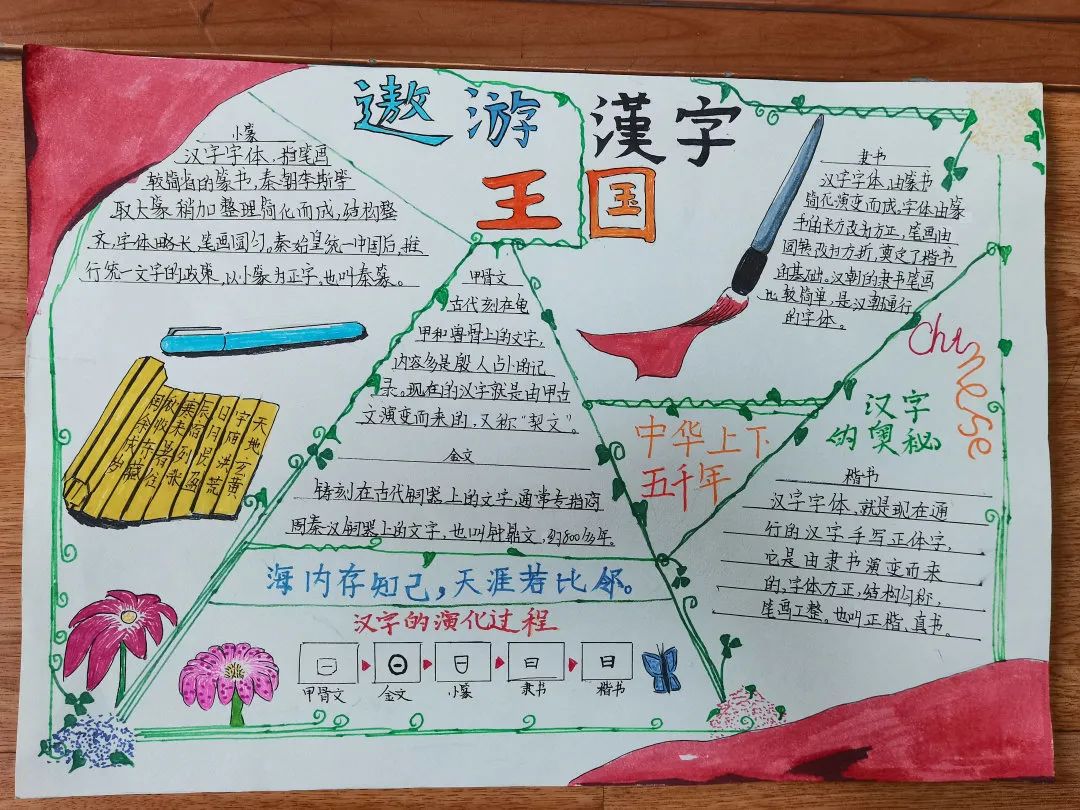 遨游漢字
王国
小篆
汉字字体,指笔画
较简省的篆书,秦朝李斯等
取大篆稍加整理简化而成,结构整
齐,字体略长,笔画圆匀。秦始皇统一中国后,推
行统一文字的政策,以小篆为正字,也叫秦篆。
天地玄黄
宇宙洪荒
日月
辰宿列张
寒来暑往
秋收冬藏
甲骨文
古代刻在龟
甲和兽骨上的文字,
内容多是殷人占卜的记
录。现在的汉字就是由甲古
文演变而来的,又称“契文”。
金文
铸刻在古代铜器上的文字,通常专指商
周秦汉铜器上的文字,也叫钟鼎文,约800多年。
隶书
汉字字体,由篆书
简化演变而成,字体由篆
书的长方改为方正,笔画由
圆转改为方折,奠定了楷书
的基础。汉朝的隶书笔画
比较简单,是汉朝通行
的字体。
Chinese
中华上下
五千年
汉字
的奥秘
楷书
汉字字体,就是现在通
行的汉字手写正体字,
它是由隶书演变而来
的,字体方正,结构匀称,
笔画工整。也叫正楷、真书。
海内存知己,天涯若比邻。
汉字的演化过程
日 日 日 日 日
甲骨文 金文 小篆 隶书 楷书